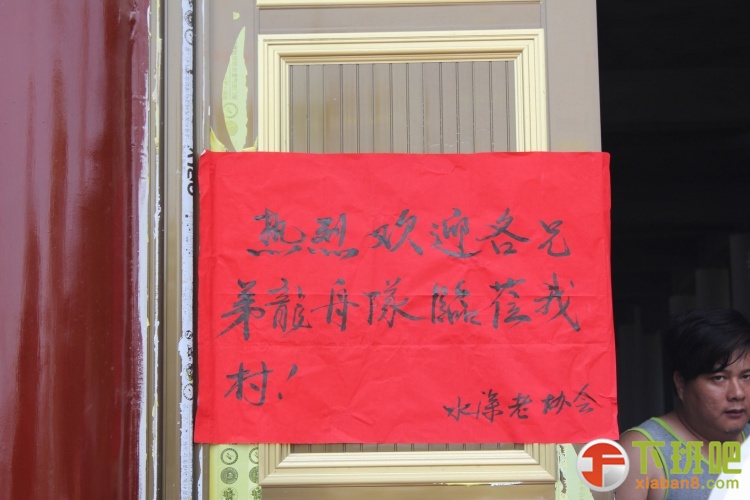 热烈欢迎各兄
弟龍舟隊臨莅我
村！
水深老协会
下班吧
xiaban8.com